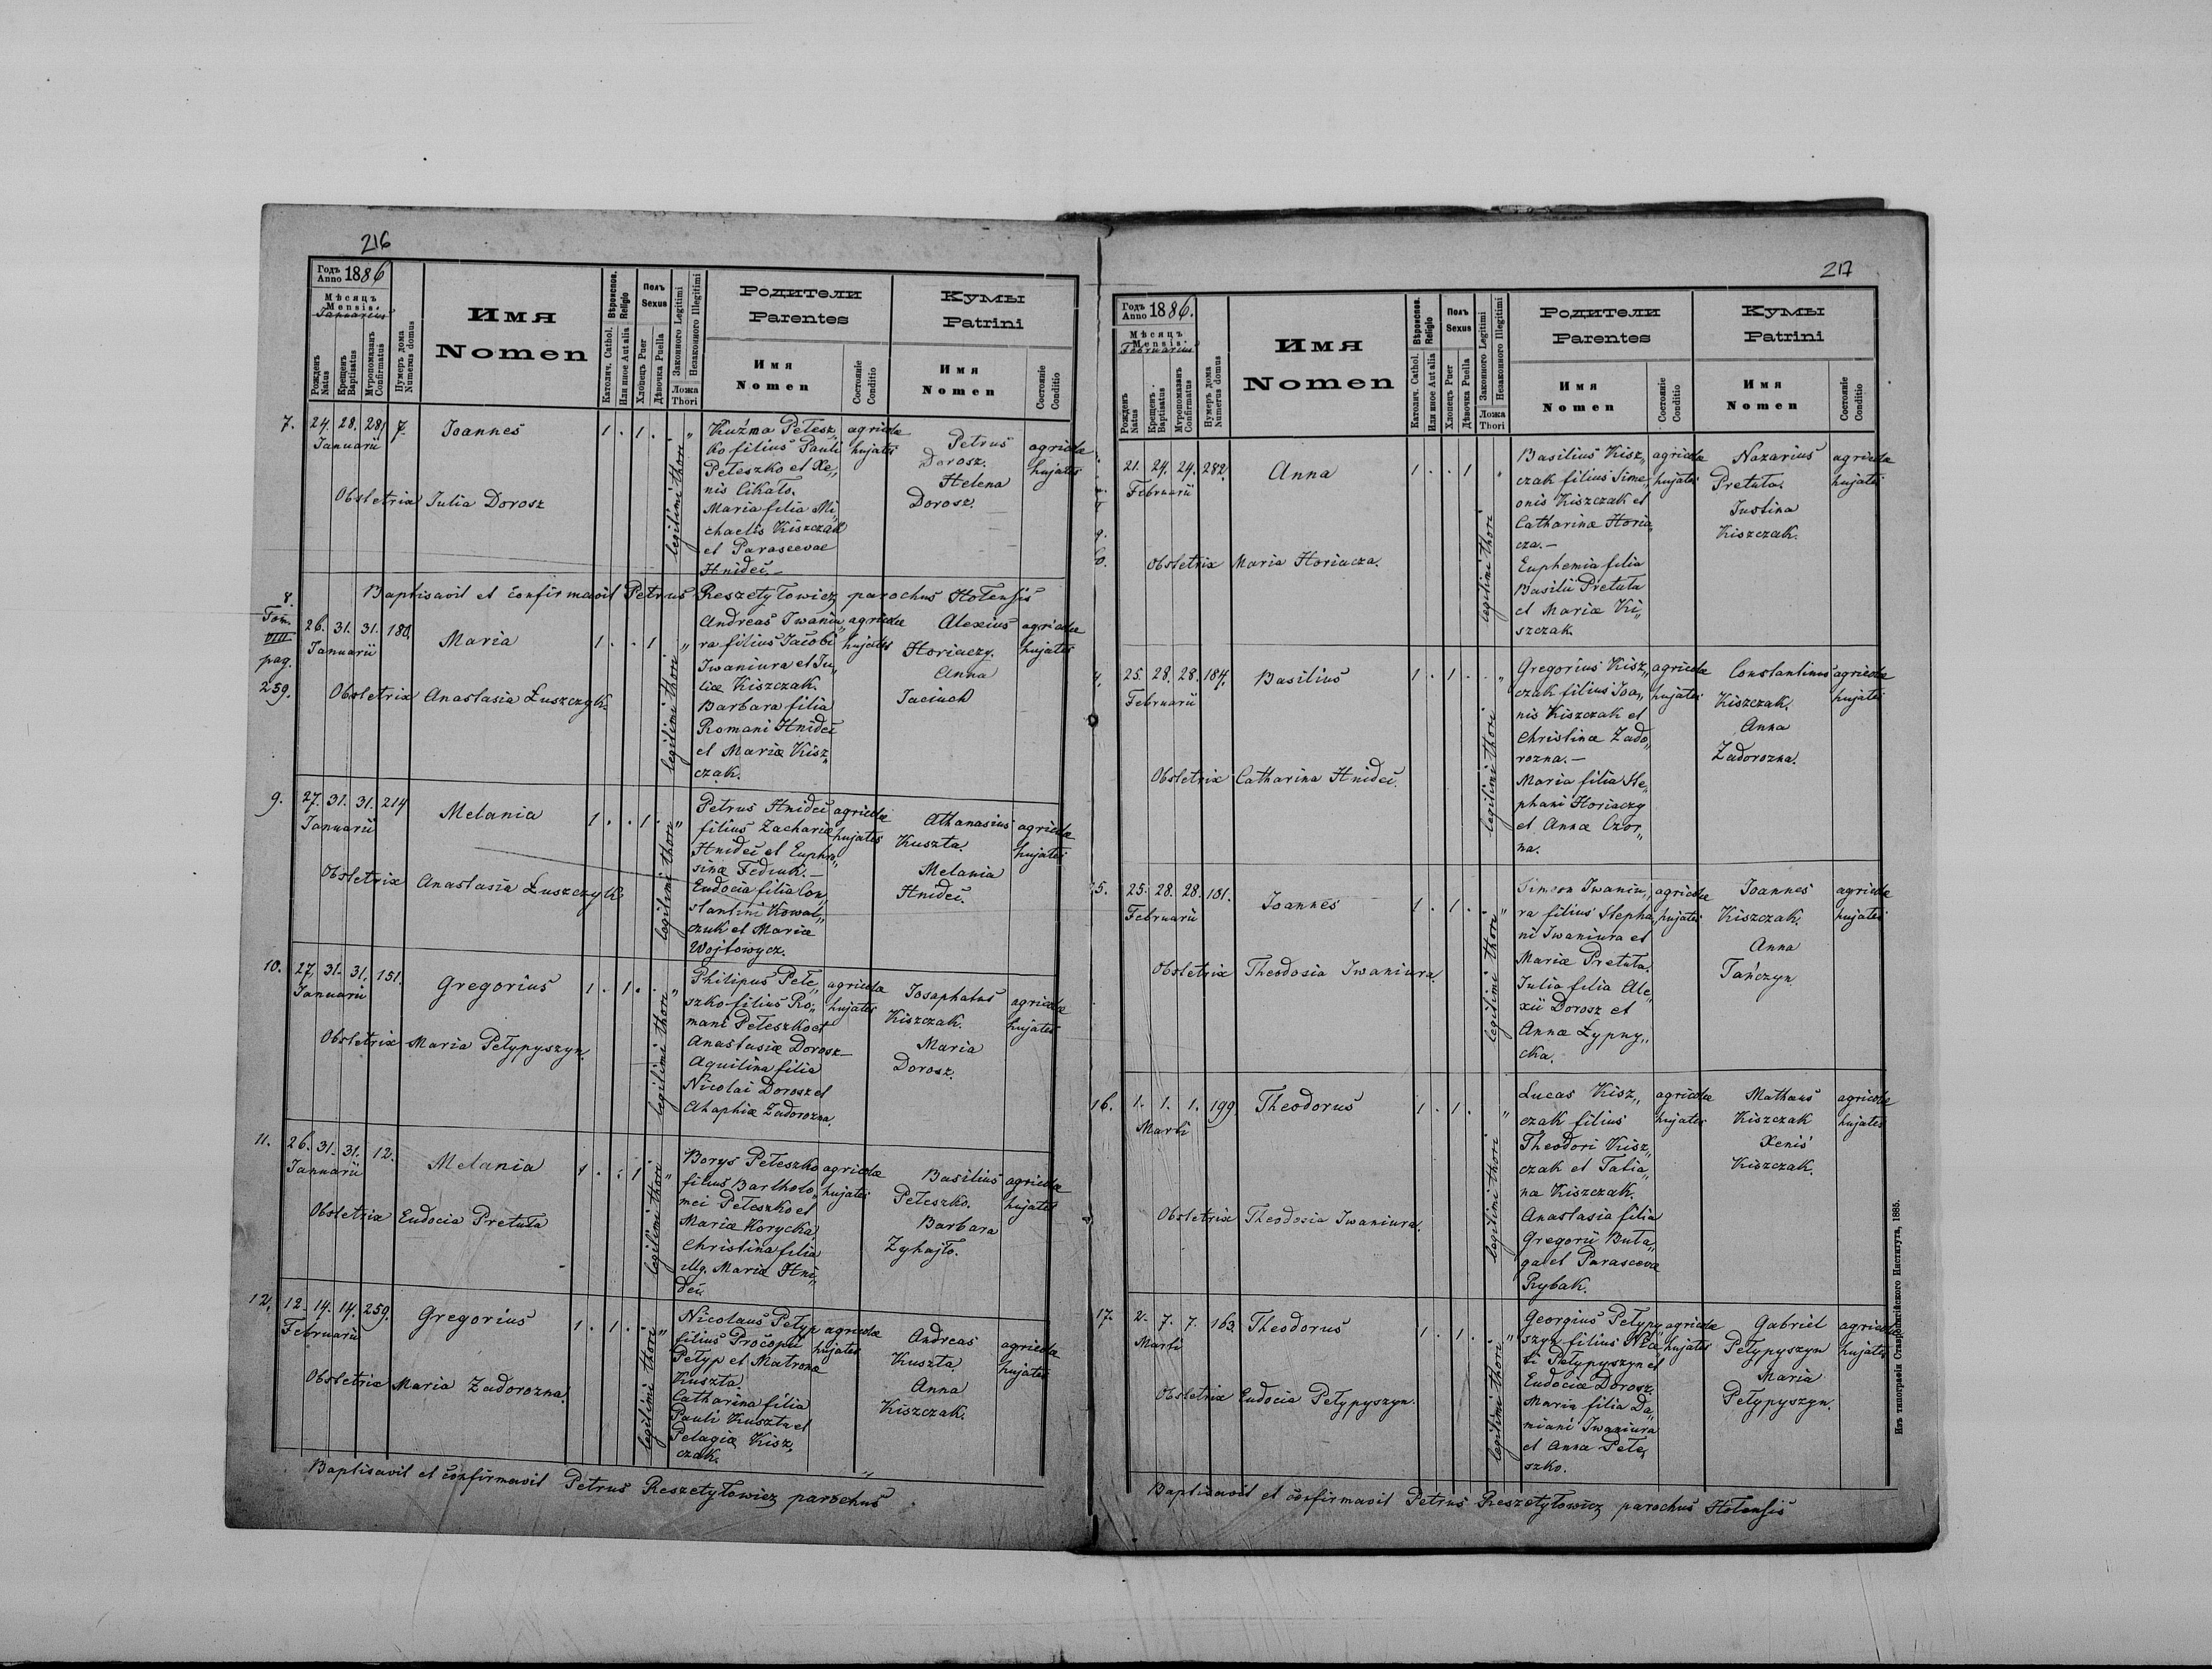 216
Годъ Anno 1886
Мѣсяцъ
Mensis:
Januarius
Рожденъ Natus
Крещенъ Baptisatus
Мѵропомазанъ Confirmatus
Нумеръ дома Numerus domus
Имя
Nomen
Вѣроиспов. Religio
Католич. Cathol.
Или иное Aut alia
Полъ
Sexus
Хлопецъ Puer
Дѣвочка Puella
Законного Legitimi
Незаконного Illegitimi
Ложа
Thori
Родители
Parentes
Имя
Nomen
Состояніе Conditio
Кумы
Patrini
Имя
Nomen
Состояніе Conditio
7. 24. 28. 28. 7. Joannes 1 . 1 . "
Januarii
Obstetrix Julia Dorosz
legitimi thori
Kuźma Petesz„
ko filius Pauli
Peteszko et Xe„
nis Cikało.
Maria filia Mi„
chaelis Kiszczak
et Parascevae
Hnideć.—
agricolæ
hujates
Petrus
Dorosz.
Helena
Dorosz.
agricolæ
hujates
Baptisavit et confirmavit Petrus Reszetyłowicz parochus Hotensis
8.
Tom.
VIII
pag.
259.
26. 31. 31. 180. Maria 1 . . 1 "
Januarii
Obstetrix Anastasia Łuszczyk.
legitimi thori
Andreas Iwaniu„
ra filius Jacobi
Iwaniura et Ju„
liæ Kiszczak.
Barbara filia
Romani Hnideć
et Mariæ Kisz„
czak.
agricolæ
hujates
Alexius
Horiaczy.
Anna
Jaciuch
agricolæ
hujates
9. 27. 31. 31. 214 Melania 1 . . 1 "
Januarii
Obstetrix Anastasia Łuszczyk
legitimi thori
Petrus Hnideć
filius Zachariæ
Hnideć et Euphro„
sinæ Fediuk.—
Eudocia filia Con„
stantini Kowal„
czuk et Mariæ
Wojtowycz.
agricolæ
hujates
Athanasius
Kuszta.
Melania
Hnideć.
agricolæ
hujates
10. 27. 31. 31. 151. Gregorius 1 . 1 . "
Januarii
Obstetrix Maria Pełypyszyn.
legitimi thori
Philipus Pete„
szko filius Ro„
mani Peteszko et
Anastasiæ Dorosz—
Aquilina filia
Nicolai Dorosz et
Ahaphiæ Zadorozna.
agricolæ
hujates
Josaphatus
Kiszczak.
Maria
Dorosz.
agricolæ
hujates
11. 26. 31. 31. 12. Melania 1 . . 1 "
Januarii
Obstetrix Eudocia Pretuła
legitimi thori
Borys Peteszko
filius Bartholo„
mei Peteszko et
Mariæ Korycka,
Christina filia
illg. Mariæ Hni„
deć.
agricolæ
hujates
Basilius
Peteszko.
Barbara
Zyhajło.
agricolæ
hujates
12. 12. 14. 14. 259. Gregorius 1 . 1 . "
Februarii
Obstetrix Maria Zadorozna.
legitimi thori
Nicolaus Pełyp
filius Procopii
Pełyp et Matronæ
Kuszta.
Catharina filia
Pauli Kuszta et
Pelagiæ Kisz„
czak.
agricolæ
hujates
Andreas
Kuszta
Anna
Kiszczak.
agricolæ
hujates
Baptisavit et confirmavit Petrus Reszetyłowicz parochus
217
Годъ Anno 1886.
Мѣсяцъ
Mensis:
Februarius
Рожденъ Natus
Крещенъ Baptisatus
Мѵропомазанъ Confirmatus
Нумеръ дома Numerus domus
Имя
Nomen
Вѣроиспов. Religio
Католич. Cathol.
Или иное Aut alia
Полъ
Sexus
Хлопецъ Puer
Дѣвочка Puella
Законного Legitimi
Незаконного Illegitimi
Ложа
Thori
Родители
Parentes
Имя
Nomen
Состояніе Conditio
Кумы
Patrini
Имя
Nomen
Состояніе Conditio
21. 24. 24. 282. Anna 1 . . 1 "
Februarii
Obstetrix Maria Horiacza.
legitimi thori
Basilius Kisz„
czak filius Sime„
onis Kiszczak et
Catharinæ Horia„
cza.—
Euphemia filia
Basilii Pretuła
et Mariæ Ki„
szczak.
agricolæ
hujates
Nazarius
Pretuła.
Justina
Kiszczak.
agricolæ
hujates
4. 25. 28. 28. 184. Basilius 1 . 1 . "
Februarii
Obstetrix Catharina Hnideć.
legitimi thori
Gregorius Kisz„
czak filius Joan„
nis Kiszczak et
Christinæ Zado„
rozna.—
Maria filia Ste„
phani Horiaczy
et Annæ Czor„
na.
agricolæ
hujates
Constantinus
Kiszczak.
Anna
Zadorozna.
agricolæ
hujates
5. 25. 28. 28. 101. Joannes 1 . 1 . "
Februarii
Obstetrix Theodosia Iwaniura.
legitimi thori
Simeon Iwaniu„
ra filius Stepha„
ni Iwaniura et
Mariæ Pretuła.
Julia filia Ale„
xii Dorosz et
Annæ Łypny„
cka.
agricolæ
hujates
Joannes
Kiszczak.
Anna
Tańczyn
agricolæ
hujates
16. 1. 1. 1. 199. Theodorus 1 . 1 . "
Marti
Obstetrix Theodosia Iwaniura.
legitimi thori
Lucas Kisz„
czak filius
Theodori Kisz„
czak et Tatia„
na Kiszczak.
Anastasia filia
Gregorii Buła„
ga et Parascevæ
Rybak.
agricolæ
hujates
Mathæus
Kiszczak
Xenis
Kiszczak.
agricolæ
hujates
17. 2. 7. 7. 163. Theodorus 1 . 1 . "
Marti
Obstetrix Eudocia Pełypyszyn.
legitimi thori
Georgius Pełypy„
szyn filius
Pełypyszyn et
Eudociæ Dorosz.
Maria filia Da„
miani Iwaniura
et Anna Pete„
szko.
agricolæ
hujates
Gabriel
Pełypyszyn
Maria
Pełypyszyn.
agricolæ
hujates
Baptisavit et confirmavit Petrus Reszetyłowicz parochus Hotensis
Изъ типографіи Ставропигійского Института, 1885.